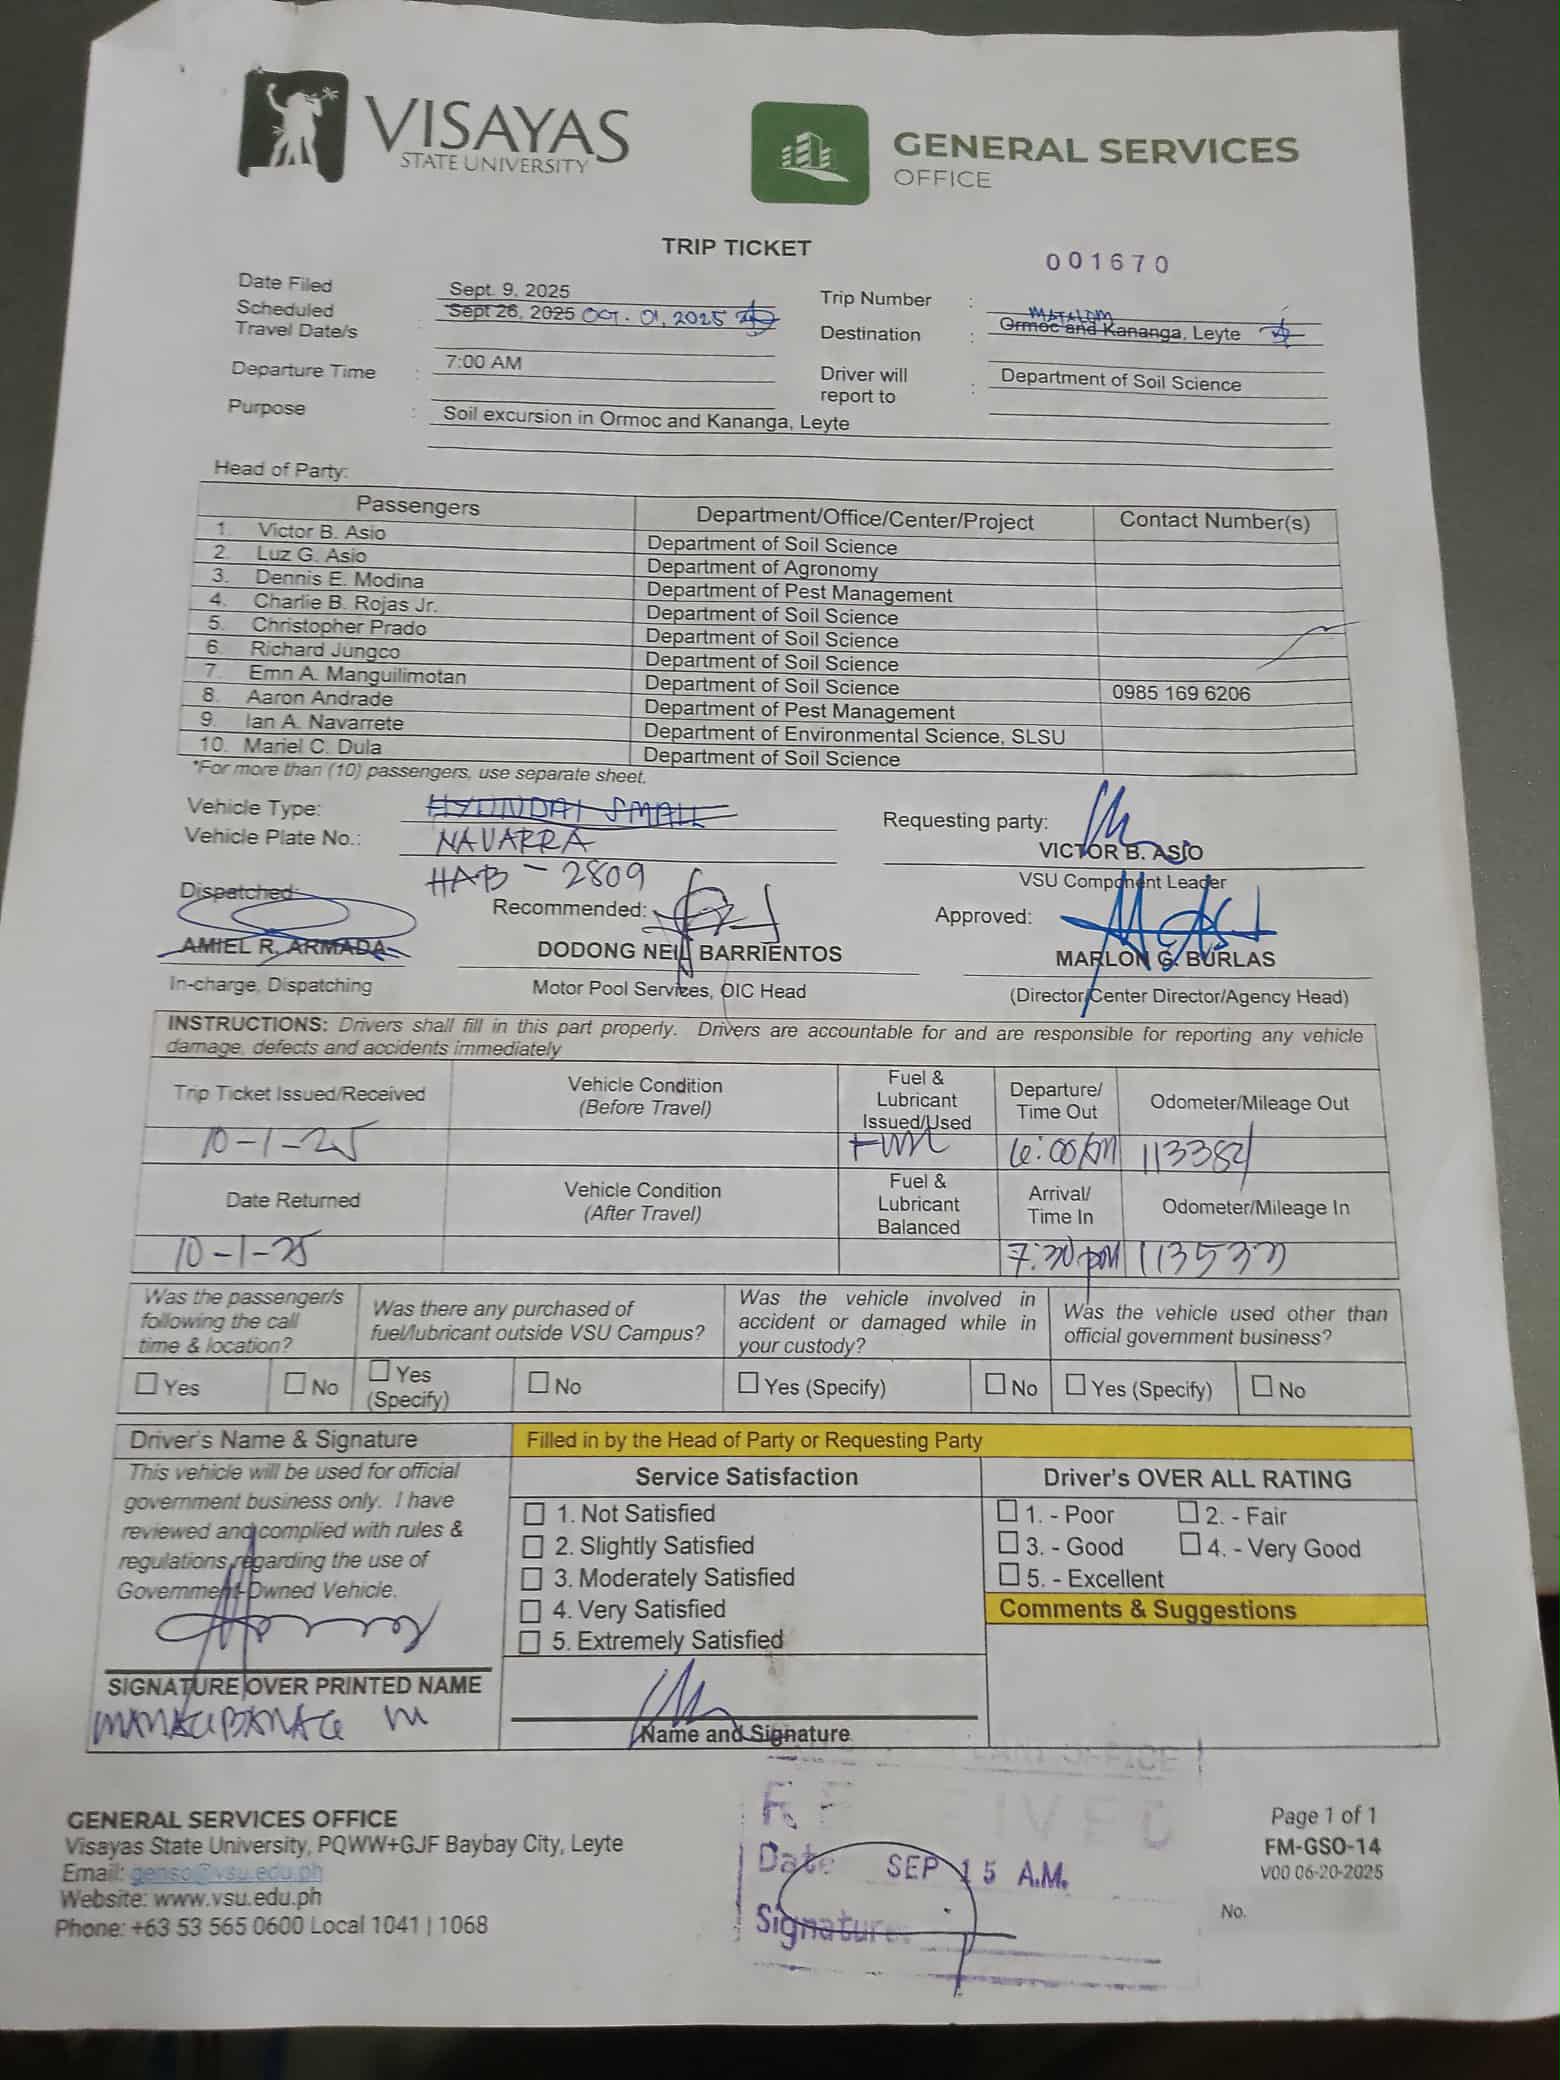 VISAYAS
STATE UNIVERSITY
GENERAL SERVICES
OFFICE
TRIP TICKET
001670
Date Filed Sept. 9, 2025
Trip Number :
Scheduled Travel Date/s : Sept 26, 2025 OCT. 01, 2025
MATALOM
Destination : Ormoc and Kananga, Leyte
Departure Time : 7:00 AM
Driver will report to : Department of Soil Science
Purpose : Soil excursion in Ormoc and Kananga, Leyte
Head of Party:
Passengers Department/Office/Center/Project Contact Number(s)
1. Victor B. Asio Department of Soil Science
2. Luz G. Asio Department of Agronomy
3. Dennis E. Modina Department of Pest Management
4. Charlie B. Rojas Jr. Department of Soil Science
5. Christopher Prado Department of Soil Science
6. Richard Jungco Department of Soil Science
7. Emn A. Manguilimotan Department of Soil Science 0985 169 6206
8. Aaron Andrade Department of Pest Management
9. Ian A. Navarrete Department of Environmental Science, SLSU
10. Mariel C. Dula Department of Soil Science
*For more than (10) passengers, use separate sheet.
Vehicle Type: HYUNDAI SMALL
Requesting party:
Vehicle Plate No.: NAVARRA
HAB - 2809
VICTOR B. ASIO
VSU Component Leader
Dispatched:
Recommended:
Approved:
AMIEL R. ARMADA
DODONG NEIL BARRIENTOS
MARLON G. BURLAS
In-charge, Dispatching
Motor Pool Services, OIC Head
(Director/Center Director/Agency Head)
INSTRUCTIONS: Drivers shall fill in this part properly. Drivers are accountable for and are responsible for reporting any vehicle
damage, defects and accidents immediately
Trip Ticket Issued/Received Vehicle Condition (Before Travel) Fuel & Lubricant Issued/Used Departure/ Time Out Odometer/Mileage Out
10-1-25
Date Returned Vehicle Condition (After Travel) Fuel & Lubricant Balanced Arrival/ Time In Odometer/Mileage In
10-1-25 7:30 pm
Was the passenger/s following the call time & location?
Was there any purchased of fuel/lubricant outside VSU Campus?
Was the vehicle involved in accident or damaged while in your custody?
Was the vehicle used other than official government business?
Yes No Yes (Specify) No Yes (Specify) No Yes (Specify) No
Driver's Name & Signature
Filled in by the Head of Party or Requesting Party
This vehicle will be used for official
government business only. I have
reviewed and complied with rules &
regulations regarding the use of
Government-Owned Vehicle.
SIGNATURE OVER PRINTED NAME
Service Satisfaction
1. Not Satisfied
2. Slightly Satisfied
3. Moderately Satisfied
4. Very Satisfied
5. Extremely Satisfied
Name and Signature
Driver's OVER ALL RATING
1. - Poor 2. - Fair
3. - Good 4. - Very Good
5. - Excellent
Comments & Suggestions
GENERAL SERVICES OFFICE
Visayas State University, PQWW+GJF Baybay City, Leyte
Email: genso@vsu.edu.ph
Website: www.vsu.edu.ph
Phone: +63 53 565 0600 Local 1041 | 1068
Date SEP 15 A.M.
Signature:
Page 1 of 1
FM-GSO-14
V00 06-20-2025
No.